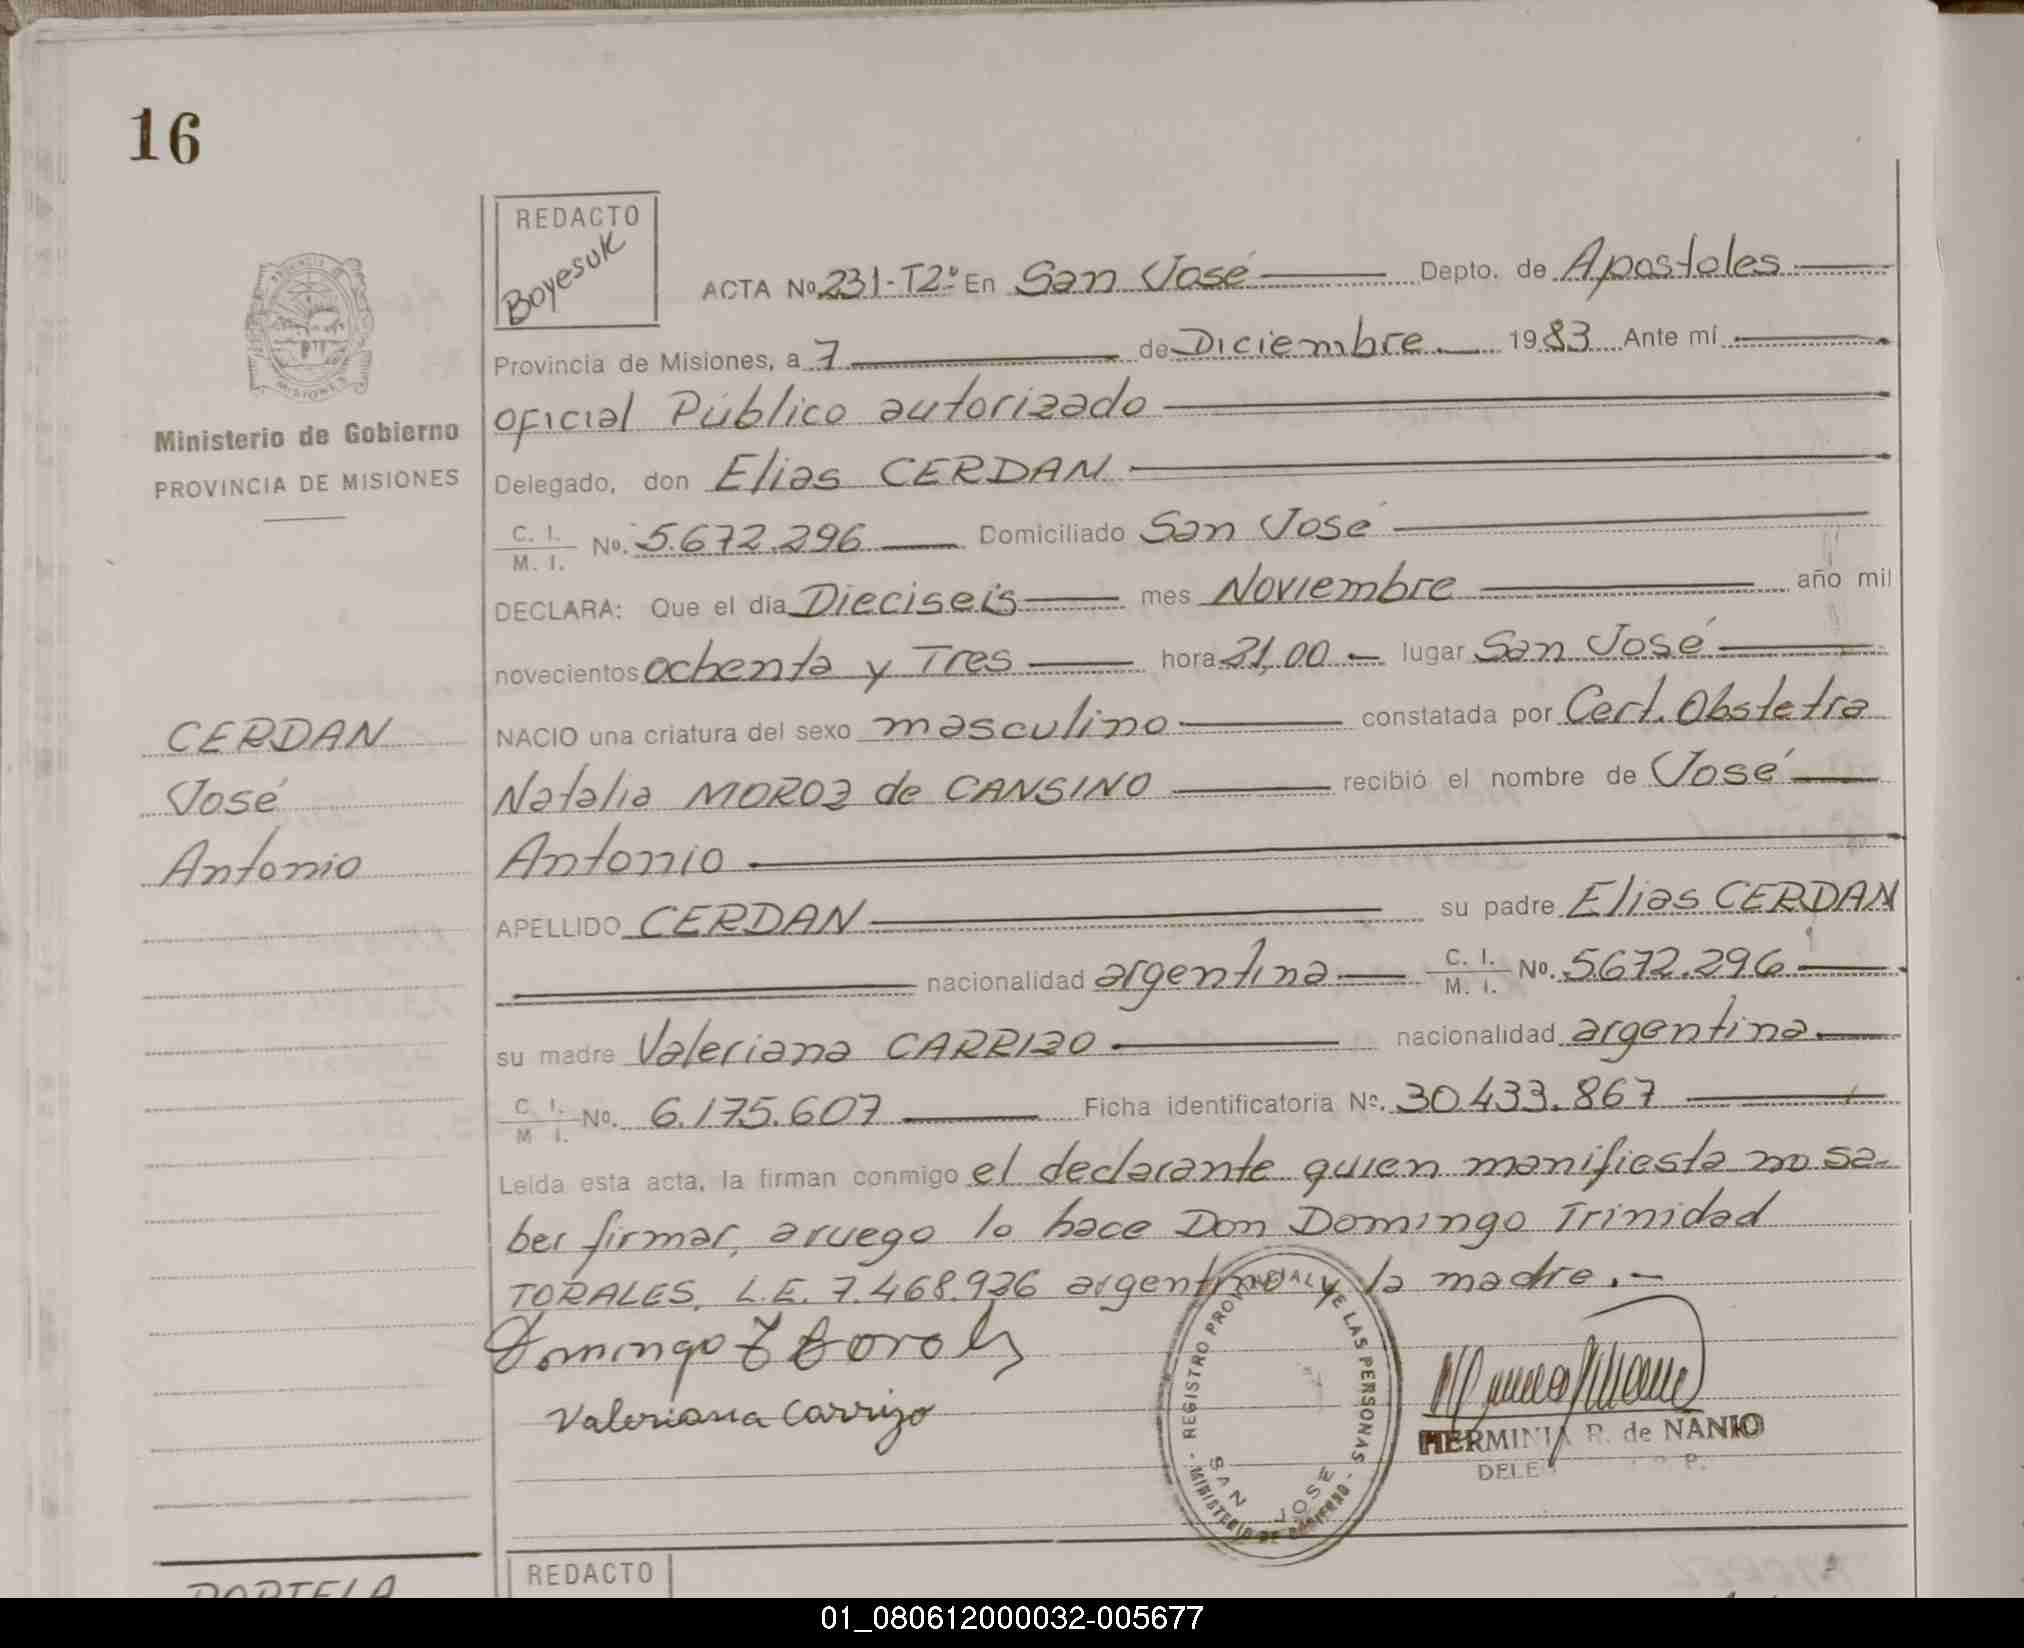 16
REDACTO
Boyesuk
ACTA Nº 231-T2º En San José Depto. de Apostoles
Provincia de Misiones, a 7 de Diciembre 1983 Ante mí
Oficial Público autorizado
Ministerio de Gobierno
PROVINCIA DE MISIONES
Delegado, don Elias CERDAN
C. I.
M. I. No. 5.672.296 Domiciliado San José
DECLARA: Que el día Dieciseis mes Noviembre año mil
novecientos ochenta y Tres hora 21,00 lugar San José
CERDAN
José
Antonio
NACIO una criatura del sexo masculino constatada por Cert. Obstetra
Natalia MOROZ de CANSINO recibió el nombre de José
Antonio
APELLIDO CERDAN su padre Elias CERDAN
nacionalidad argentina C. I.
M. I. Nº. 5672.296
su madre Valeriana CARRIZO nacionalidad argentina
C. I.
M I. No. 6.175.607 Ficha identificatoria Nº. 30.433.867
Leída esta acta, la firman conmigo el declarante quien manifiesta no sa-
ber firmar, a ruego lo hace Don Domingo Trinidad
TORALES, L.E. 7.468.926 argentino y la madre.-
Domingo T Torales
Valeriana Carrizo
REGISTRO PROVINCIAL DE LAS PERSONAS
SAN JOSE
MINISTERIO DE GOBIERNO
HERMINIA R. de NANIO
REDACTO
PORTELA
01_080612000032-005677